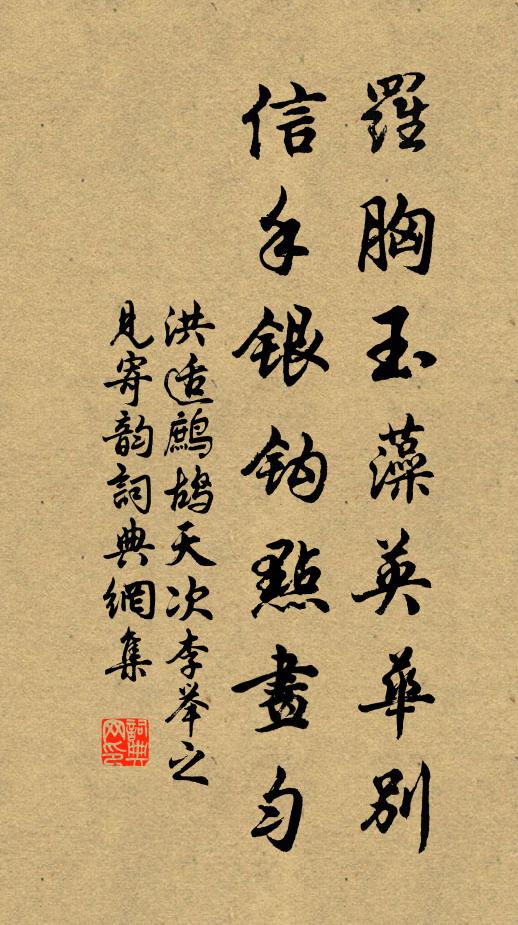 羅胸玉藻英華別
信手銀鈎點畫勻
洪适鷓鴣天次李举之
見寄韵詞典網集
詞典网印